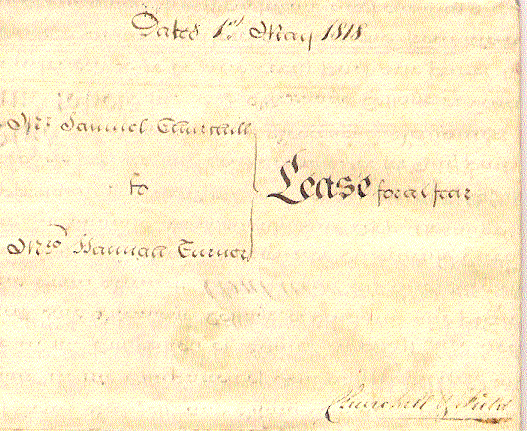 Dated 1st May 1818
Mr. Samuel Churchill
to
Mrs. Hannah Turner
Lease for a Year
Churchill & Field